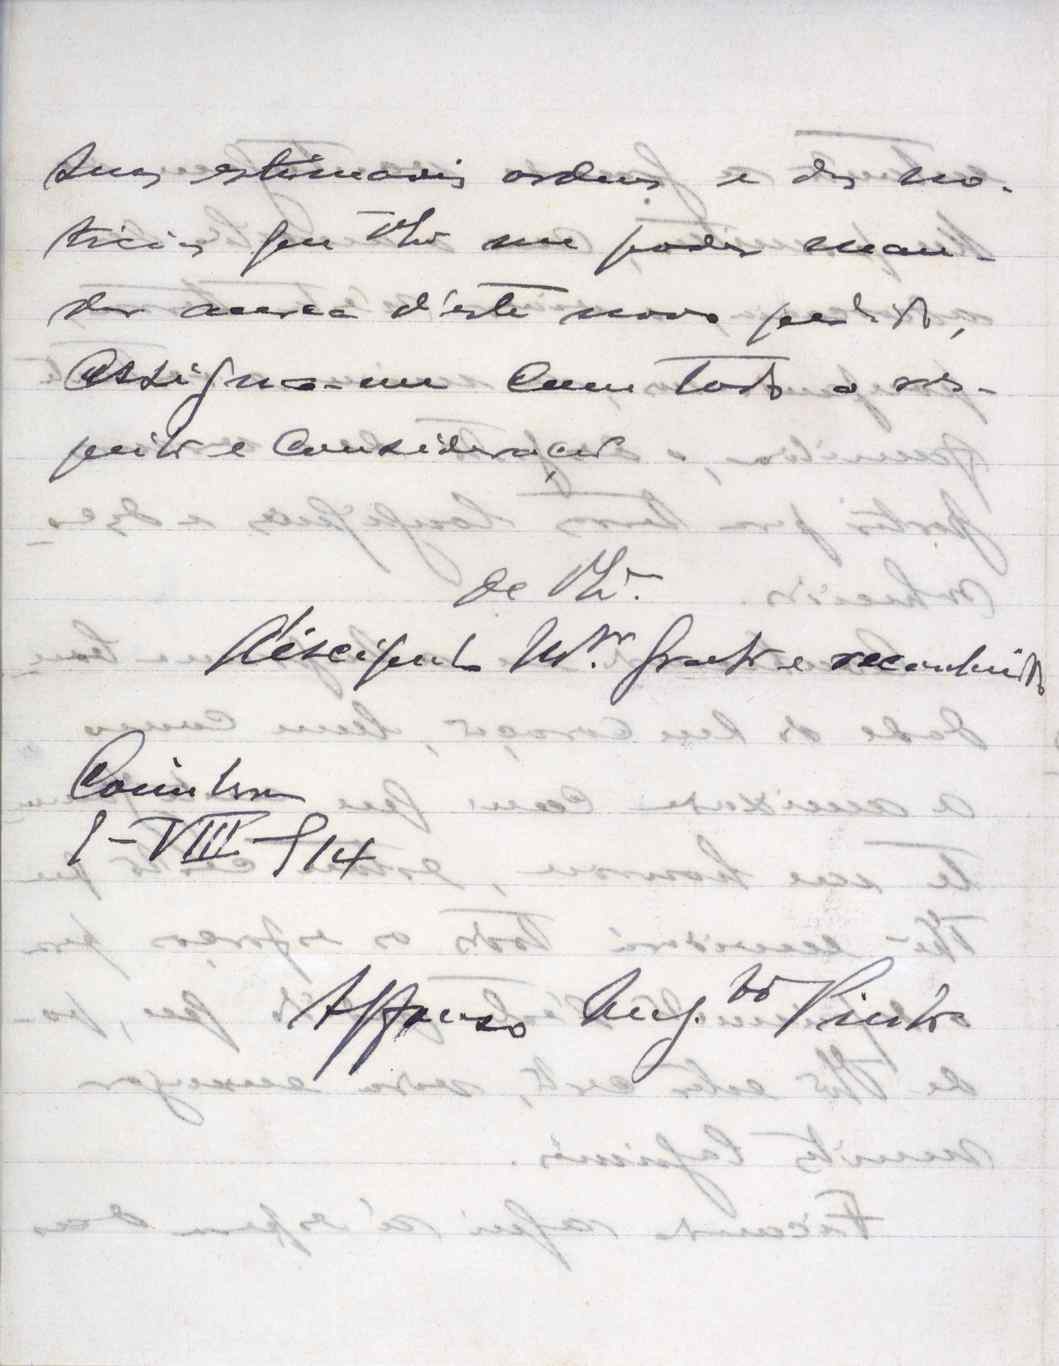 suas estimaveis ordens e das no-
ticias que V. Exª me poder man-
dar acerca d'este novo pedido,
assigno-me com todo o res-
peito e consideração
de V. Exª.
discipulo Mto. grato e reconhecido
Coimbra
1-VIII-914
Affonso Aug.to Pinto